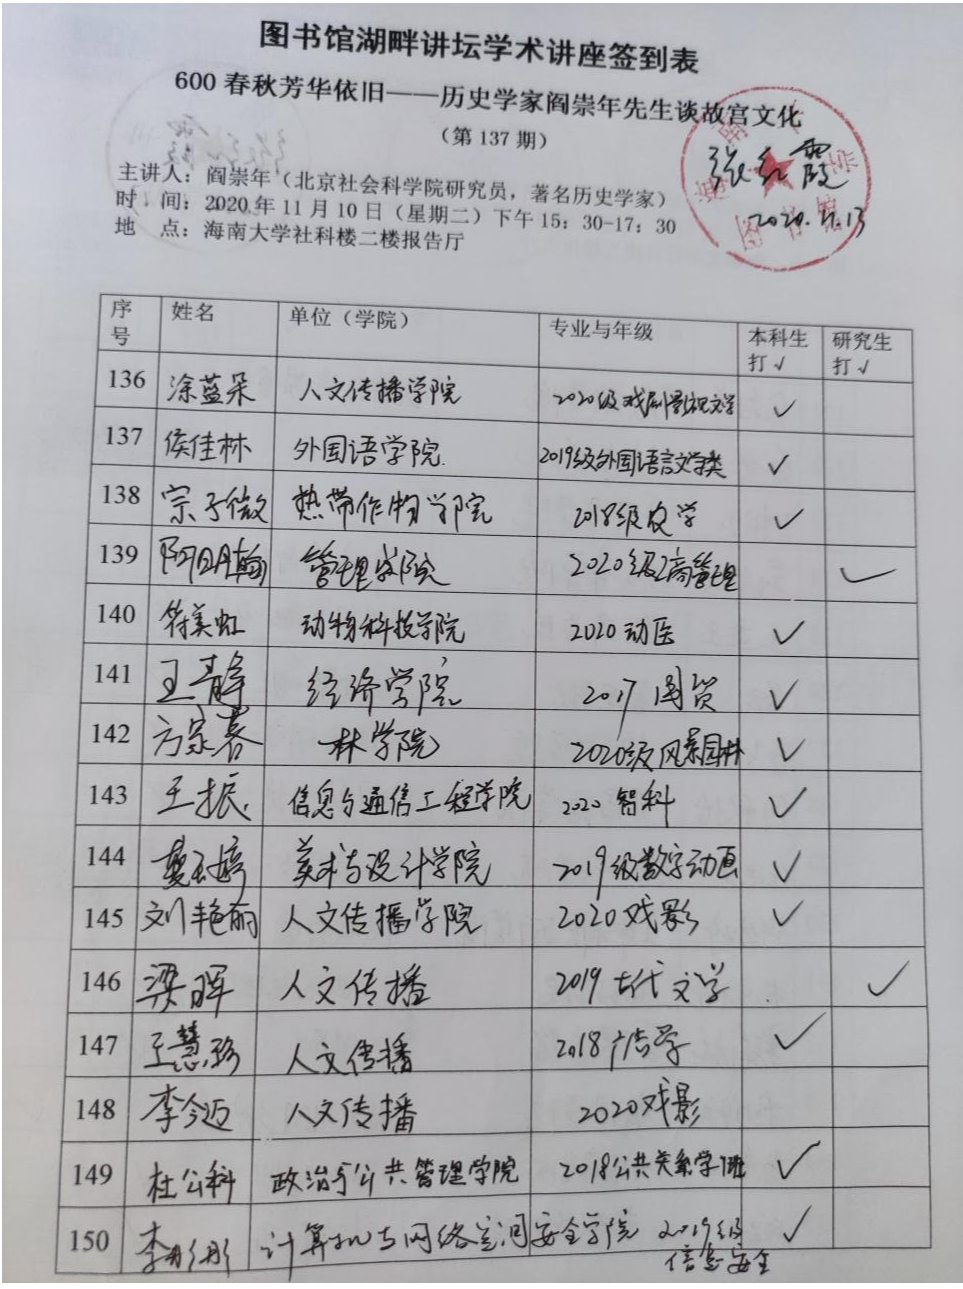 图书馆湖畔讲坛学术讲座签到表
600 春秋芳华依旧——历史学家阎崇年先生谈故宫文化
（第 137 期）
张红霞
主讲人：阎崇年（北京社会科学院研究员，著名历史学家）
时　间：2020 年 11 月 10 日（星期二）下午 15：30-17：30
地　点：海南大学社科楼二楼报告厅
序号 姓名 单位（学院） 专业与年级 本科生打√ 研究生打√
136 涂蓝朵 人文传播学院 2020级戏剧影视文学 √
137 侯佳林 外国语学院 2019级外国语言文学类 √
138 宗子微 热带作物学院 2018级农学 √
139 管理学院 2020级工商管理 √
140 符美虹 动物科技学院 2020动医 √
141 王静 经济学院 2017国贸 √
142 方家春 林学院 2020级风景园林 √
143 王振 信息与通信工程学院 2020智科 √
144 美术与设计学院 2019级数字动画 √
145 刘艳丽 人文传播学院 2020戏影 √
146 梁晖 人文传播 2019古代文学 √
147 王慧珍 人文传播 2018广告学 √
148 李今迈 人文传播 2020戏影
149 杜公科 政治与公共管理学院 2018公共关系学班 √
150 李彤彤 计算机与网络空间安全学院 2019级 √
信息安全